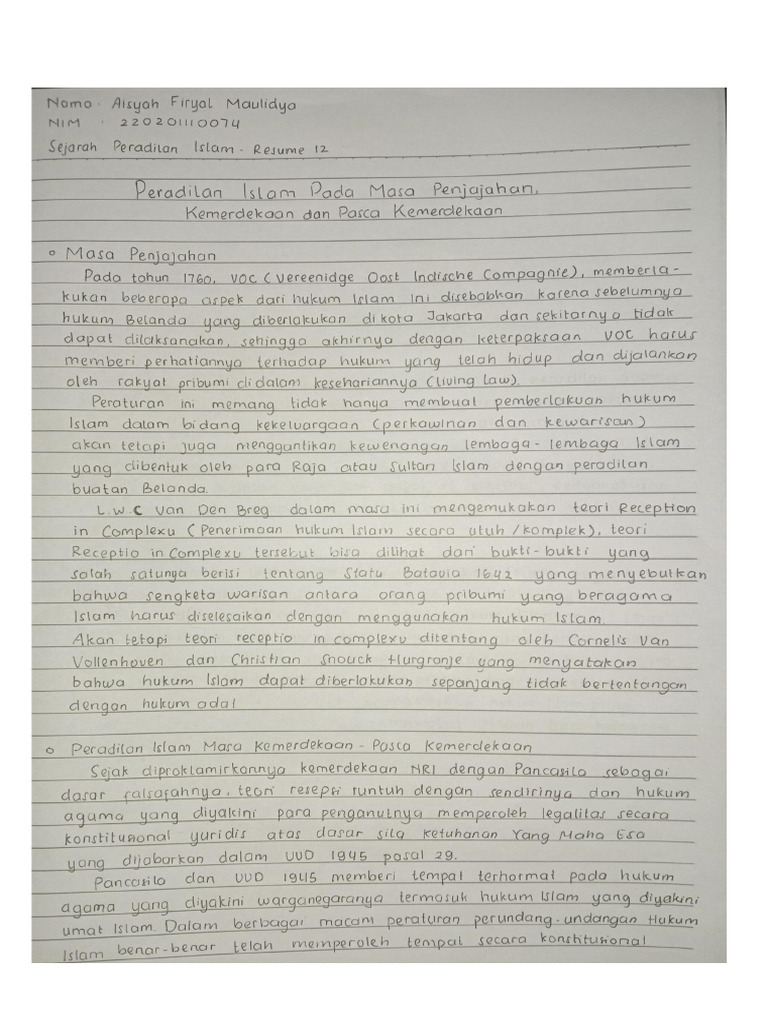 Nama : Aisyah Firyal Maulidya
NIM : 220201110074
Sejarah Peradilan Islam - Resume 12
Peradilan Islam Pada Masa Penjajahan,
Kemerdekaan dan Pasca Kemerdekaan
o Masa Penjajahan
Pada tahun 1760, VOC (Vereenidge Oost Indische Compagnie), memberla-
kukan beberapa aspek dari hukum Islam ini disebabkan karena sebelumnya
hukum Belanda yang diberlakukan di kota Jakarta dan sekitarnya tidak
dapat dilaksanakan, sehingga akhirnya dengan keterpaksaan VOC harus
memberi perhatiannya terhadap hukum yang telah hidup dan dijalankan
oleh rakyat pribumi didalam kesehariannya (living law).
Peraturan ini memang tidak hanya membuat pemberlakuan hukum
Islam dalam bidang kekeluargaan (perkawinan dan kewarisan)
akan tetapi juga menggantikan kewenangan lembaga-lembaga Islam
yang dibentuk oleh para Raja atau Sultan Islam dengan peradilan
buatan Belanda.
L.W.C Van Den Breg dalam masa ini mengemukakan teori Reception
in Complexu (Penerimaan hukum Islam secara utuh/komplek), teori
Receptio in Complexu tersebut bisa dilihat dari bukti-bukti yang
salah satunya berisi tentang Statu Batavia 1642 yang menyebutkan
bahwa sengketa warisan antara orang pribumi yang beragama
Islam harus diselesaikan dengan menggunakan hukum Islam.
Akan tetapi teori receptio in complexu ditentang oleh Cornelis Van
Vollenhoven dan Christian Snouck Hurgranje yang menyatakan
bahwa hukum Islam dapat diberlakukan sepanjang tidak bertentangan
dengan hukum adat
o Peradilan Islam Masa Kemerdekaan - Pasca Kemerdekaan
Sejak diproklamirkannya kemerdekaan NRI dengan Pancasila sebagai
dasar falsafahnya, teori resepsi runtuh dengan sendirinya dan hukum
agama yang diyakini para penganutnya memperoleh legalitas secara
konstitusional yuridis atas dasar sila ketuhanan Yang Maha Esa
yang dijabarkan dalam UUD 1945 pasal 29.
Pancasila dan UUD 1945 memberi tempat terhormat pada hukum
agama yang diyakini warganegaranya termasuk hukum Islam yang diyakini
umat Islam. Dalam berbagai macam peraturan perundang-undangan Hukum
Islam benar-benar telah memperoleh tempat secara konstitusional